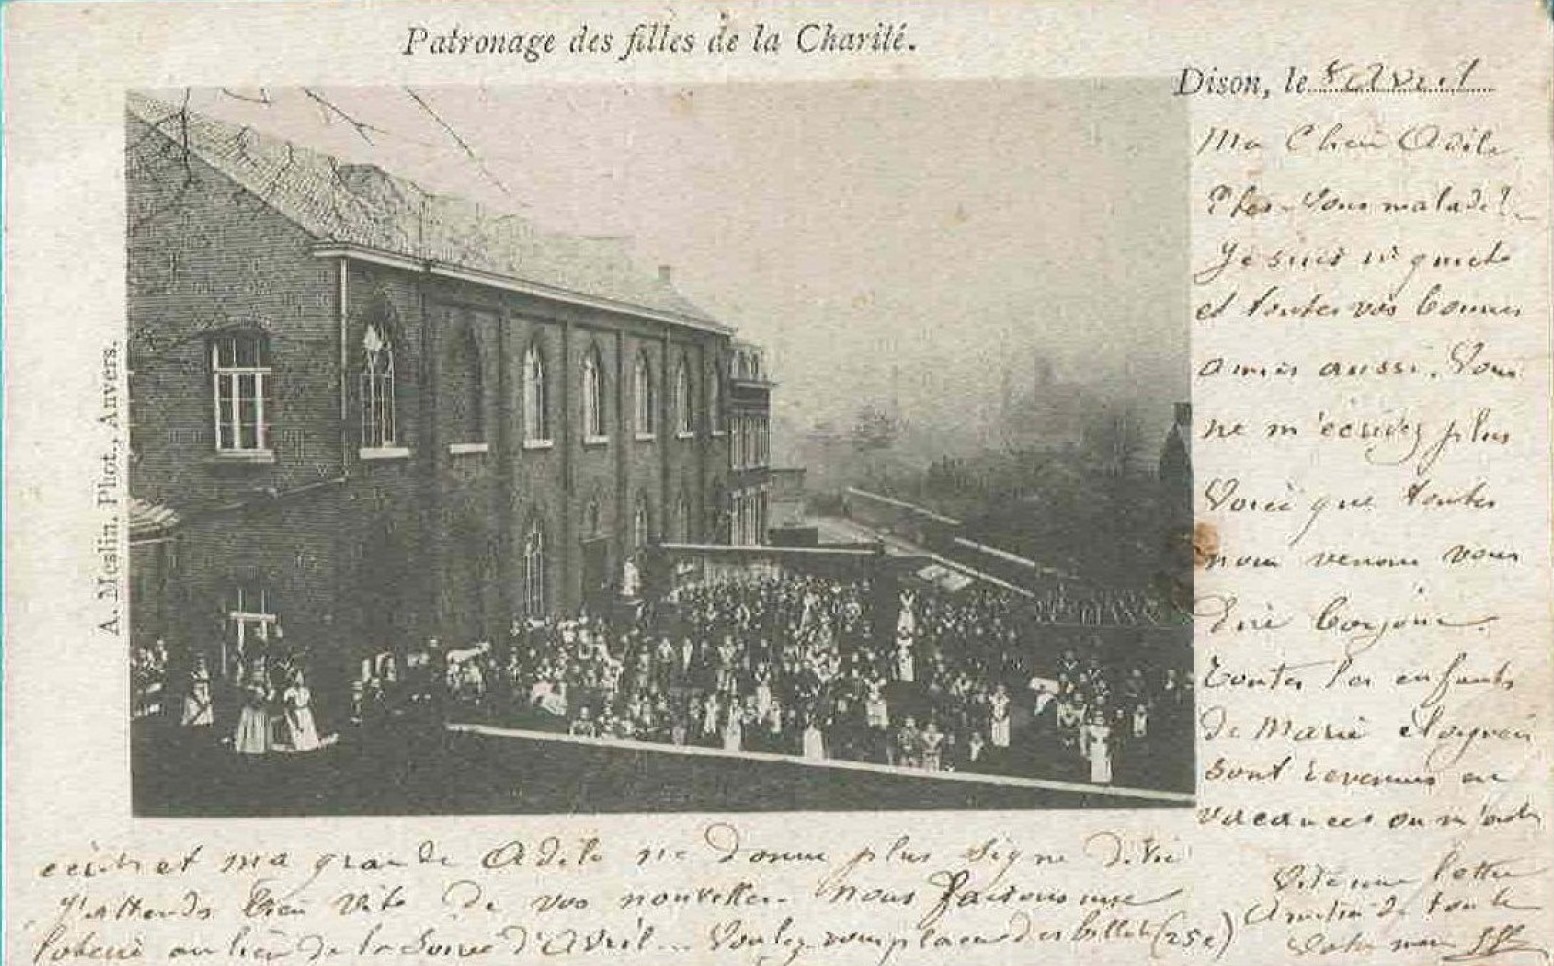 Patronage des filles de la Charité.
Dison, le avril
Ma Chère Adèle
Etes-vous malade?
Je suis inquiète
et toutes vos bonnes
amies aussi. Vous
ne m'écrivez plus
Voici que toutes
nous venons vous
dire bonjour.
Toutes les enfants
de Marie éloignées
sont revenues en
vacances ou m'ont
écrit et ma grande Adèle ne donne plus signe de vie
J'attends bien vite de vos nouvelles. Nous faisons une
au lieu de la Soirée d'Avril... Voulez-vous placer des billets (25c)
Vite une lettre
de toute
Votre
A. Meslin. Phot., Anvers.